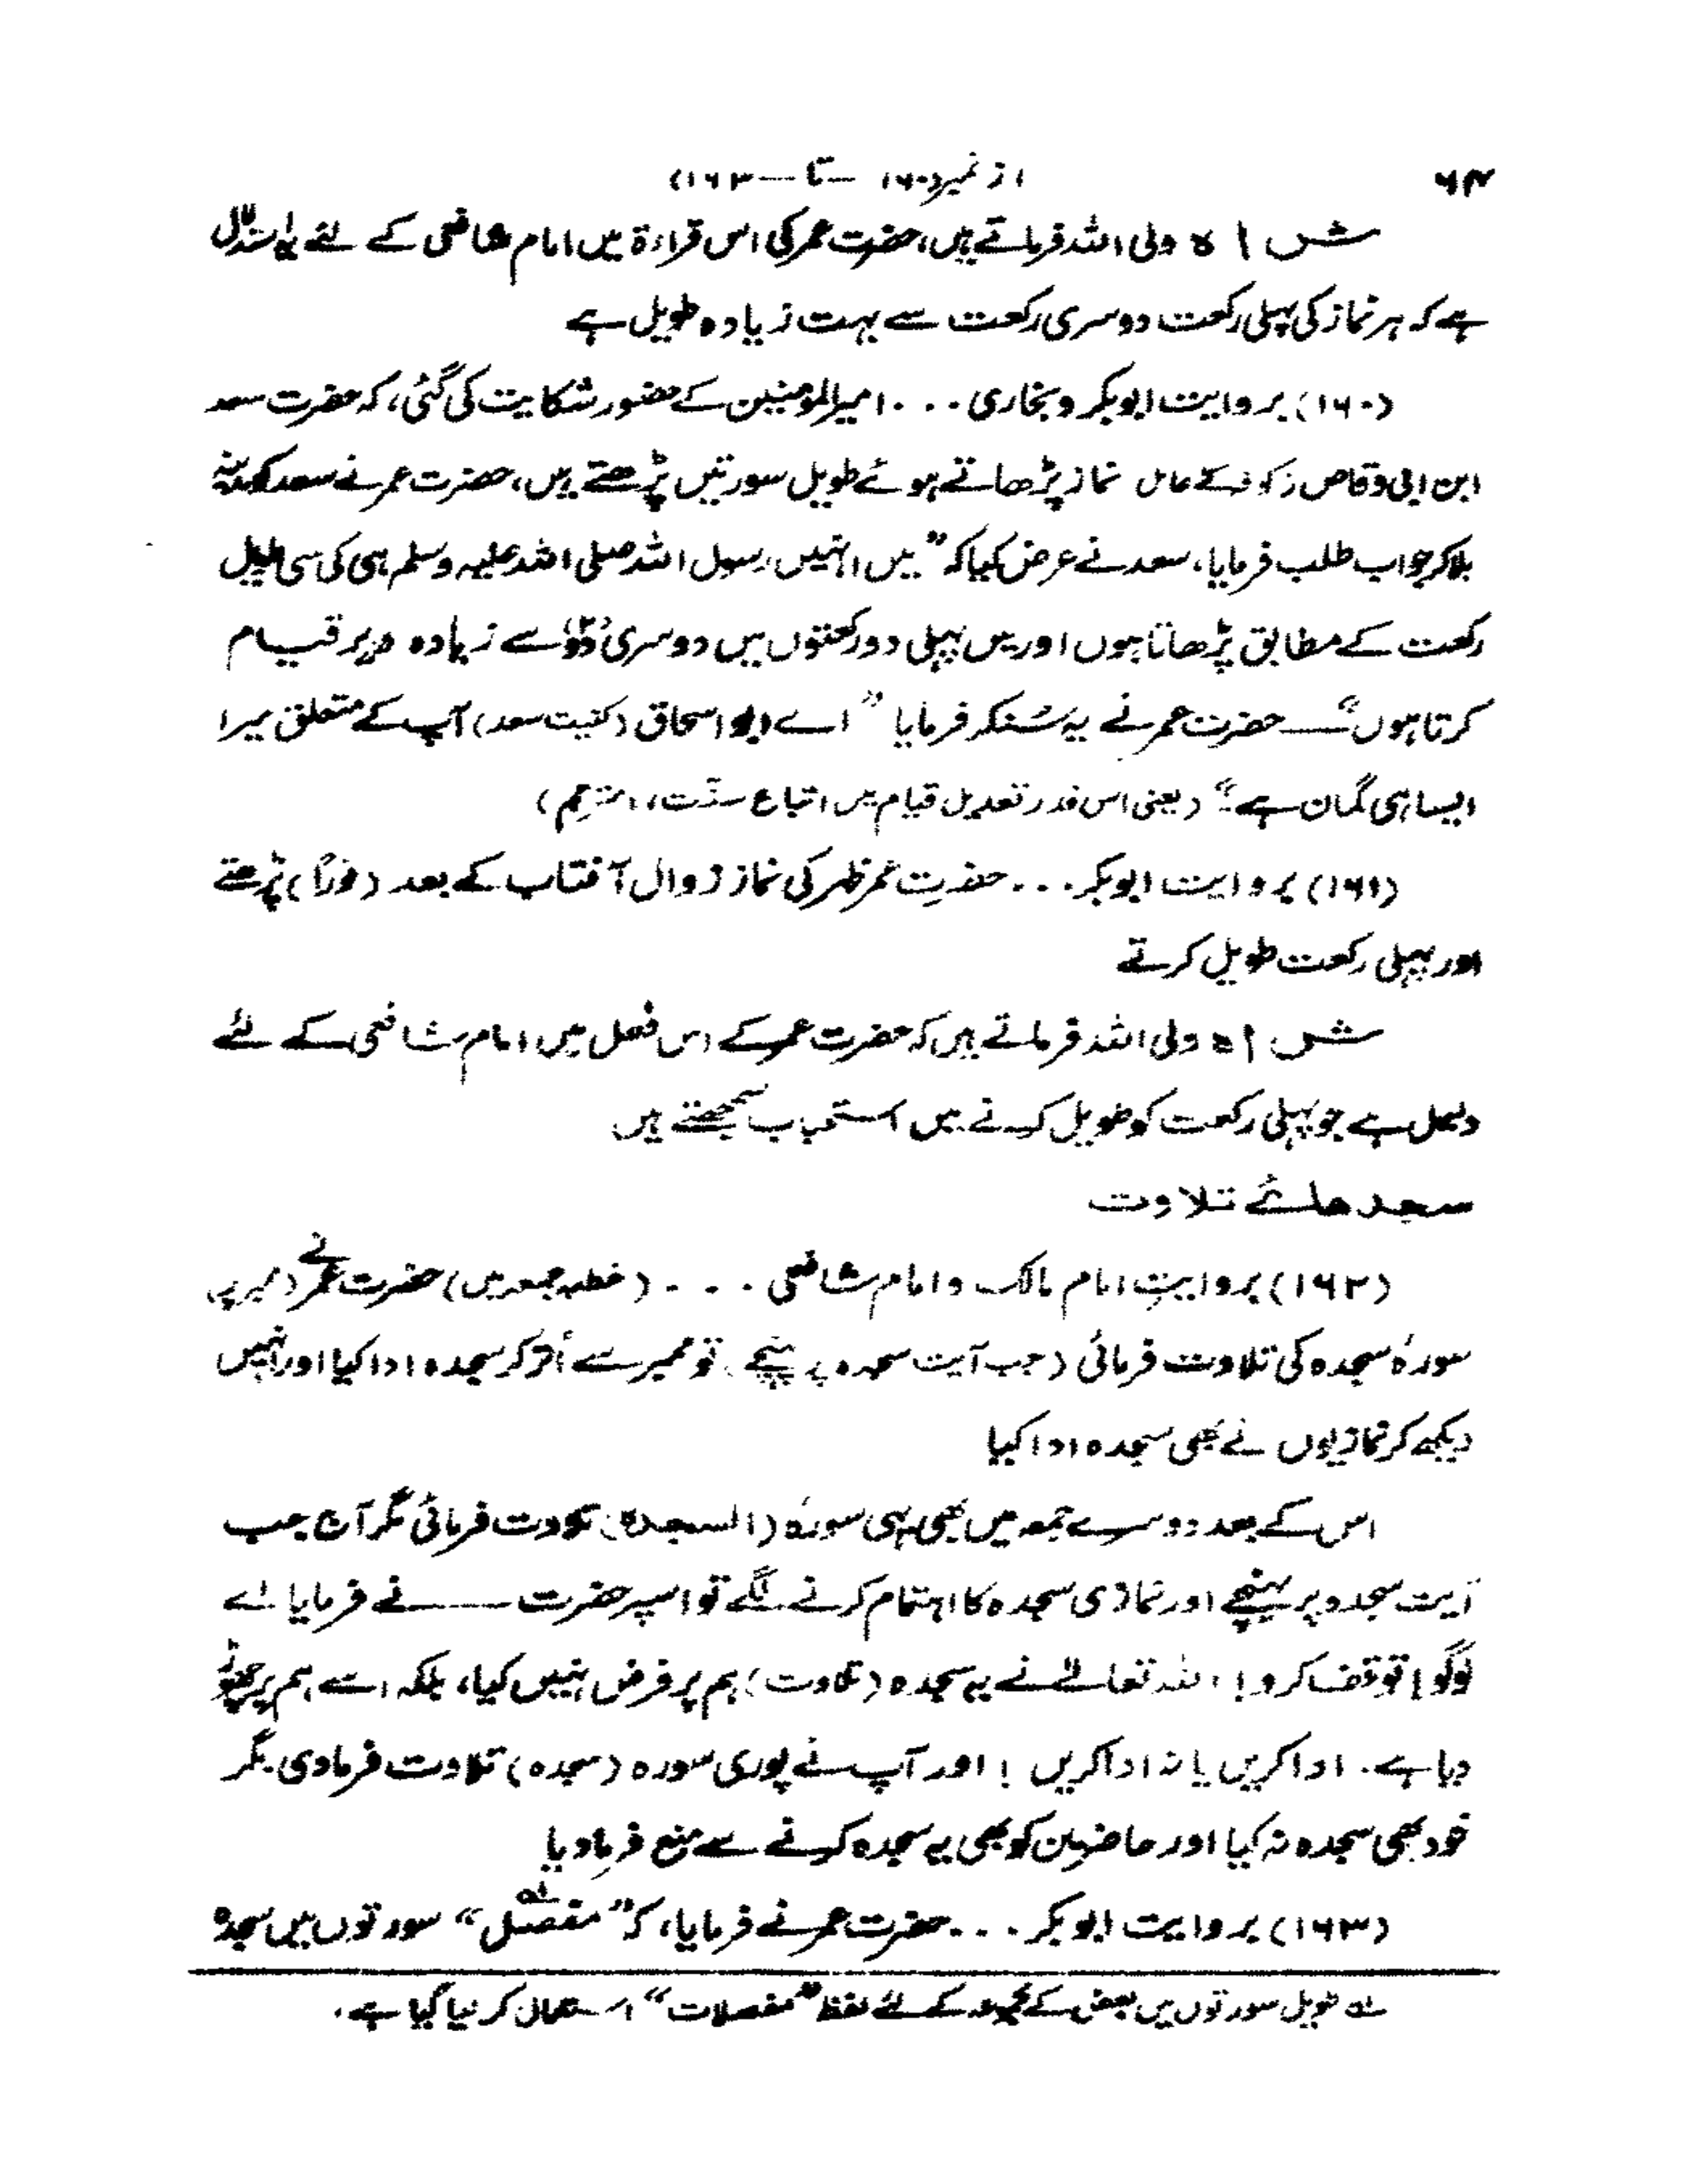 ۶۴
(از نمبر ۱۶۰ — تا — ۱۶۳)
شاہ ولی اللہ فرماتے ہیں، حضرت عمر کی اس قراءۃ میں امام شافعی کے لئے یہ استدلال
ہے کہ ہر نماز کی پہلی رکعت دوسری رکعت سے بہت زیادہ طویل ہے
(۱۶۰) بروایت ابوبکر و بخاری . . . امیرالمومنین کے حضور شکایت کی گئی، کہ حضرت سعد
ابن ابی وقاص (کوفہ کے عامل نماز پڑھاتے ہوئے طویل سورتیں پڑھتے ہیں، حضرت عمر نے سعد کو مدینہ
بلا کر جواب طلب فرمایا، سعد نے عرض کیا کہ ”میں انہیں رسول اللہ صلی اللہ علیہ وسلم ہی کی سی طویل
رکعت کے مطابق پڑھاتا ہوں اور میں پہلی دو رکعتوں میں دوسری دو سے زیادہ دیر قیام
کرتا ہوں“ — حضرت عمر نے یہ سُنکر فرمایا ”اے ابو اسحاق (کنیت سعد) آپ کے متعلق میرا
ایسا ہی گمان ہے“ (یعنی اس قدر تعدیل قیام میں اتباع سنّت، مترجم)
(۱۶۱) بروایت ابوبکر . . . حضرت عمر ظہر کی نماز زوال آفتاب کے بعد (فوراً) پڑھتے
اور پہلی رکعت طویل کرتے
شاہ ولی اللہ فرماتے ہیں کہ حضرت عمر کے اس فعل میں امام شافعی کے لئے
دلیل ہے جو پہلی رکعت کو طویل کرنے میں استحباب سمجھتے ہیں
سجدھائے تلاوت
(۱۶۲) بروایتِ امام مالک و امام شافعی . . . (خطبہ جمعہ میں) حضرت عمر نے (ممبر پر)
سورۂ سجدہ کی تلاوت فرمائی (جب آیت سجدہ پر پہنچے) تو ممبر سے اُتر کر سجدہ ادا کیا اور انہیں
دیکھ کر نمازیوں نے بھی سجدہ ادا کیا
اس کے بعد دوسرے جمعہ میں بھی یہی سورۂ (السجدۃ) تلاوت فرمائی مگر آج جب
آیت سجدہ پر پہنچے اور نمازی سجدہ کا اہتمام کرنے لگے تو اسپر حضرت —— نے فرمایا اے
لوگو! توقف کرو! اللہ تعالےٰ نے یہ سجدہ (تلاوت) ہم پر فرض نہیں کیا، بلکہ اسے ہم پر چھوڑ
دیا ہے. ادا کریں یا نہ ادا کریں! اور آپ نے پوری سورہ (سجدہ) تلاوت فرمادی. مگر
خود بھی سجدہ نہ کیا اور حاضرین کو بھی یہ سجدہ کرنے سے منع فرمادیا
(۱۶۳) بروایت ابوبکر . . . حضرت عمر نے فرمایا، کہ ”مفصّل“ لہ سورتوں میں سجدہ
لہ طویل سورتوں میں بعض کے مجموعہ کے لئے لفظ ”مفصلات“ استعمال کر لیا گیا ہے.